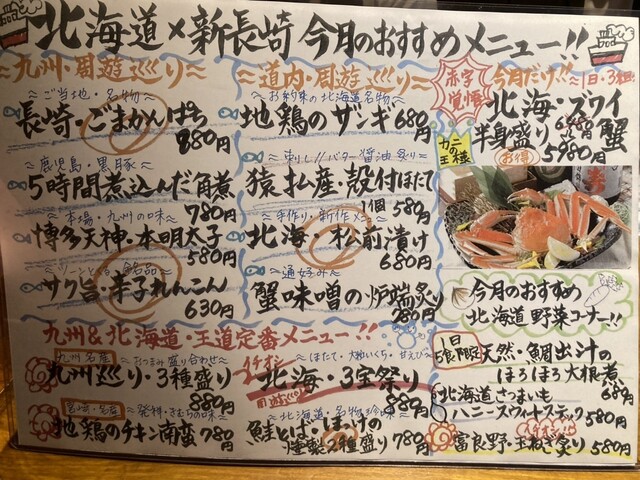 北海道×新長崎 今月のおすすめメニュー!!
~九州・周遊巡り~
~ご当地・名物~
長崎・ごまかんぱち
880円
~鹿児島・黒豚~
5時間煮込んだ角煮
780円
~本場・九州の味~
博多天神・本明太子
580円
サク旨・辛子れんこん
630円
~道内・周遊巡り~
~お約束の北海道名物~
地鶏のザンギ 680円
バター醤油炙り~
猿払産・殻付ほたて
1個 580円
~手作り・新作メニュー
北海・松前漬け
680円
~通好み~
蟹味噌の炉端炙り
780円
赤字覚悟
今月だけ!!
~1日・3組
北海・ズワイ蟹
半身盛り
5980円
カニの王様
お得
今月のおすすめ
北海道野菜コーナー!!
1日5食限定
天然・鯛出汁の
ほろほろ大根煮
680円
北海道さつまいも
ハニースウィートスティック 580円
イチオシ
富良野・玉ねぎ炙り 580円
九州&北海道・王道定番メニュー!!
九州名産
~おつまみ盛り合わせ~
九州巡り・3種盛り
880円
宮崎・名産
~発祥・きむらの味~
地鶏のチキン南蛮 780円
イチオシ
~ほたて・大粒いくら・甘えび~
北海・3宝祭り
周遊巡り
880円
~北海道・名物
鮭とば・ほっけの
燻製2種盛り 780円